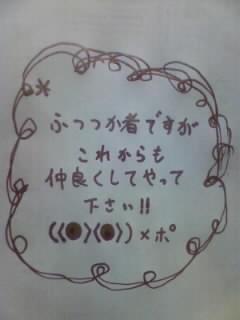 ふつつか者ですが
これからも
仲良くしてやって
下さい!!
((●)(●))×ポ